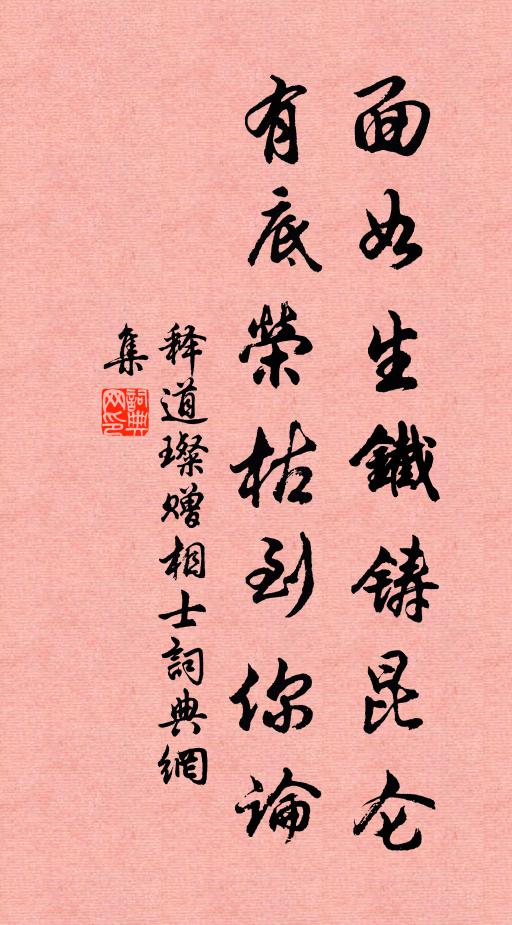 面如生鐵鋳昆仑
有底榮枯到你論
释道璨赠相士詞典網
集
詞典网印